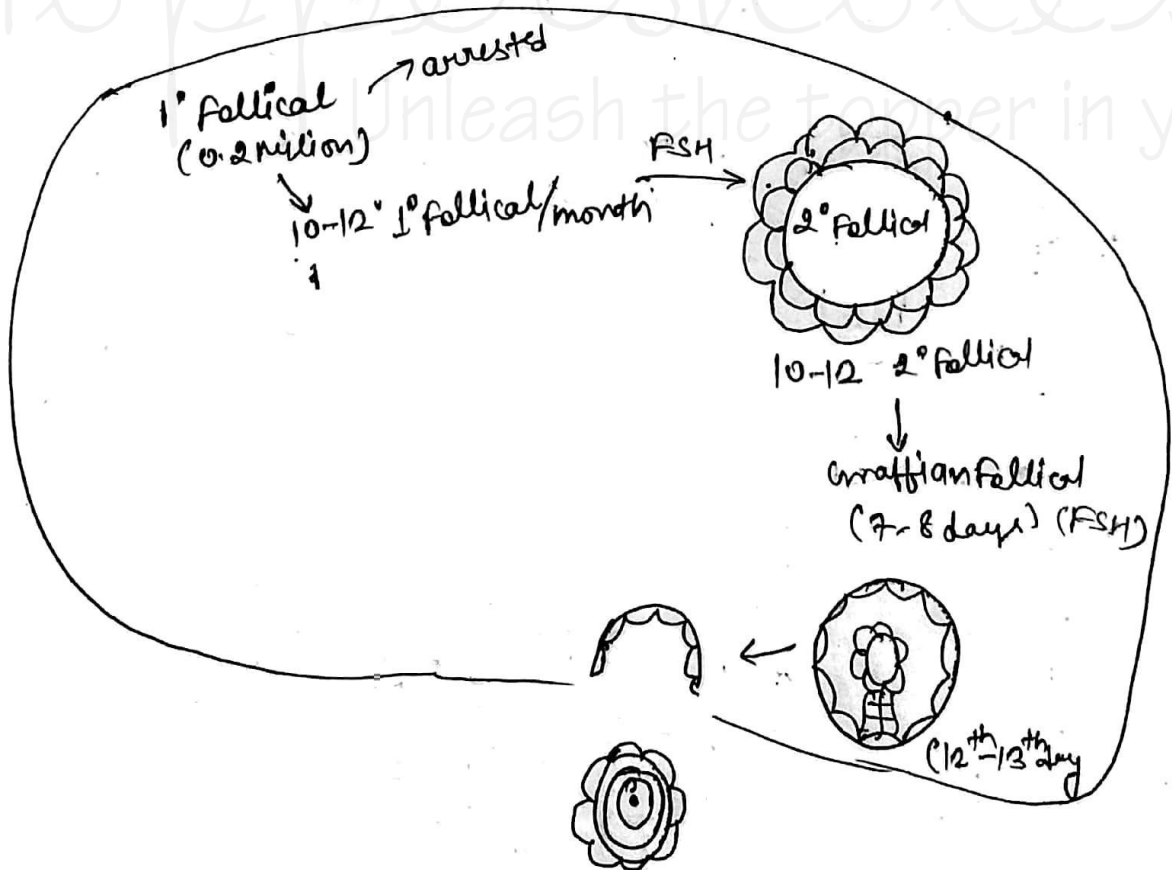 Unleash the topper in y
1° Follical
(0.2 million)
→ arrested
10-12° 1° Follical/month
1
FSH
2° Follical
10-12 2° Follical
Graffian Follical
(7-8 days) (FSH)
(12th-13th day